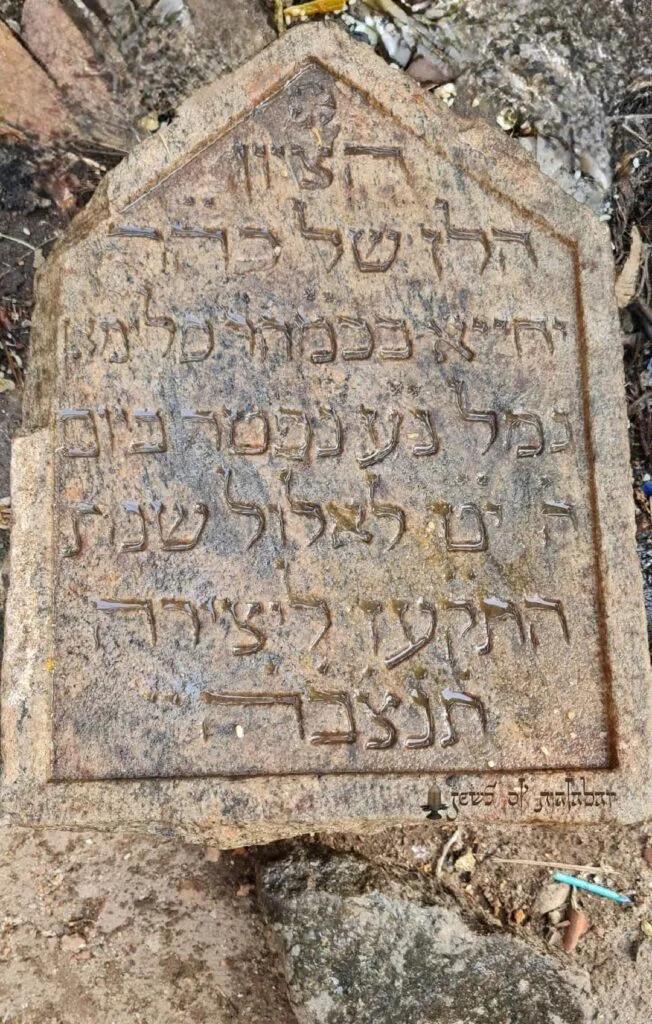 הציון
הלז של כה״ר
יחייא בכמהר סלימאן
גמל נ״ע נפטר ביום
ה׳ י״ט לאלול שנת
התקעז ליצירה
תנצבה
Jews of Malabar